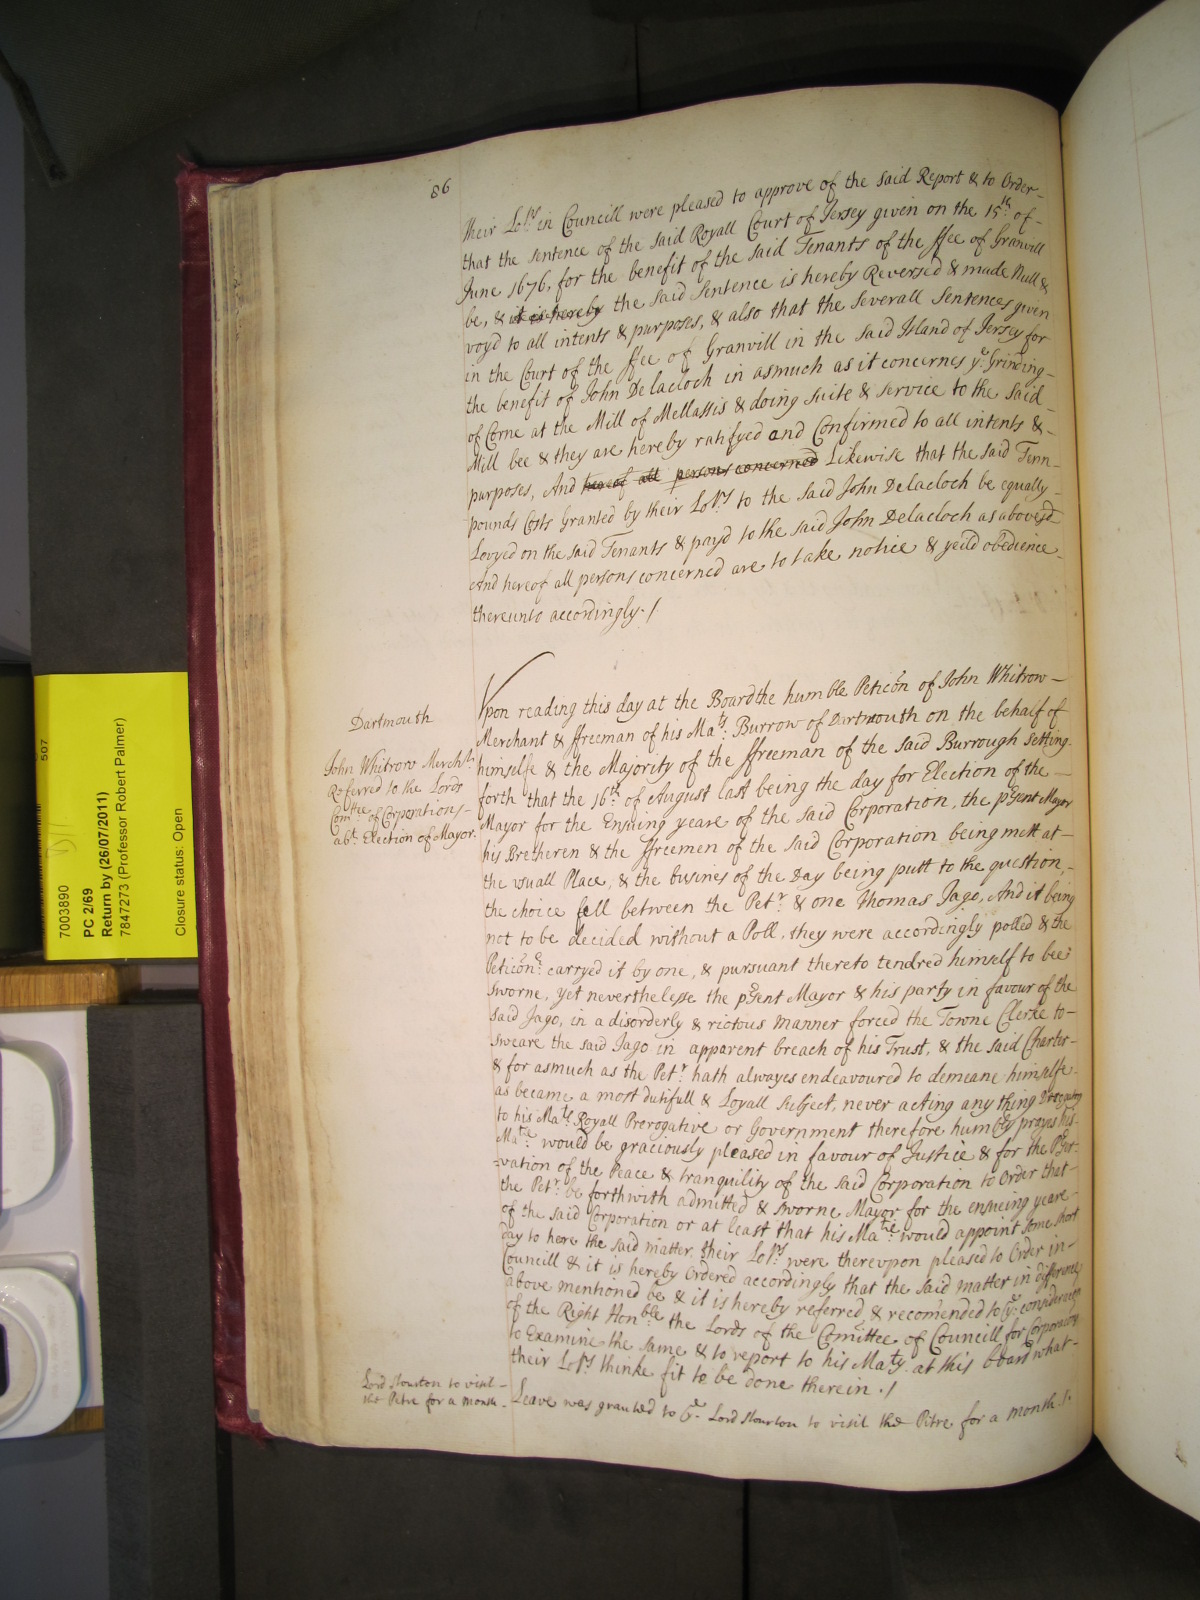 86
Their Lo:ps in Councill were pleased to approve of the said Report & to Order-
that the sentence of the said Royall Court of Jersey given on the 15th of-
June 1676, for the benefit of the said Tenants of the ffee of Granvill
be, & it is hereby the said Sentence is hereby Reversed & made Null &
voyd to all intents & purposes, & also that the severall Sentences given
in the Court of the ffee of Granvill in the said Island of Jersey for
the benefit of John Delacloch in asmuch as it concernes ye: Grinding-
of Corne at the Mill of Mellassis & doing suite & service to the said
Mill bee & they are hereby ratifyed and Confirmed to all intents &-
purposes, And hereof all persons concerned Likewise that the said Tenn-
pounds Costs Granted by their Lo:ps to the said John Delacloch be equally-
Levyed on the said Tenants & payd to the said John Delacloch as abovesd
And hereof all persons concerned are to take notice & yeild obedience-
thereunto accordingly./
Dartmouth
John Whitrow Mercht:
Referred to the Lords
Comttee of Corporations-
abt: Election of Mayor.
Vpon reading this day at the Board the humble Peticon of John Whitrow-
Merchant & ffreeman of his Mats: Burrow of Dartmouth on the behalf of
himselfe & the Majority of the ffreeman of the said Burrough setting-
forth that the 16th: of August last being the day for Election of the-
Mayor for the Ensuing yeare of the said Corporation, the psent Mayor
his Bretheren & the ffreemen of the said Corporation being mett at-
the usuall Place, & the busines of the Day being putt to the question,-
the choice fell between the Petr: & one Thomas Jago, And it being
not to be decided without a Poll, they were accordingly polled & the
Peticonr: carryed it by one, & pursuant thereto tendred himself to bee
sworne, yet neverthelesse the psent Mayor & his party in favour of the
said Jago, in a disorderly & riotous manner forced the Towne Clerke to-
sweare the said Jago in apparent breach of his Trust, & the said Charter-
& for asmuch as the Petr: hath alwayes endeavoured to demeane himselfe-
as became a most dutifull & Loyall subject, never acting any thing Derogatory
to his Mats Royall Prerogative or Government therefore humbly prayes his-
Matie: would be graciously pleased in favour of Justice & for the Pser-
=vation of the Peace & tranquility of the said Corporation to Order that-
the Petr: be forthwith admitted & sworne Mayor for the ensueing yeare-
of the said Corporation or at least that his Matie: would appoint some short
day to here the said matter. their Lo:ps were thereupon pleased to Order in-
Councill & it is hereby Ordered accordingly that the said matter in difference
above mentioned be & it is hereby referred & recomended to ye: consideracon
of the Right Honble: the Lords of the Comittee of Councill for Corporations
to Examine the same & to report to his Maty: at this board what-
their Lops thinke fit to be done therein./
Lord Stourton to visit-
the Petre for a month.
Leave was granted to ye: Lord Stourton to visit the Pitre for a month./.
7003890
PC 2/69
Return by (26/07/2011)
7847273 (Professor Robert Palmer)
Closure status: Open
507